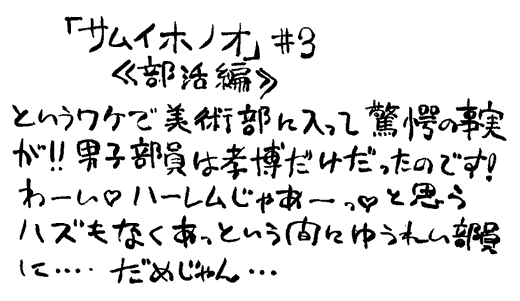 「サムイホノオ」#3
《部活編》
というワケで美術部に入って驚愕の事実
が!!男子部員は孝博だけだったのです!
わーい♡ハーレムじゃあーっ♡と思う
ハズもなくあっという間にゆうれい部員
に‥‥だめじゃん…